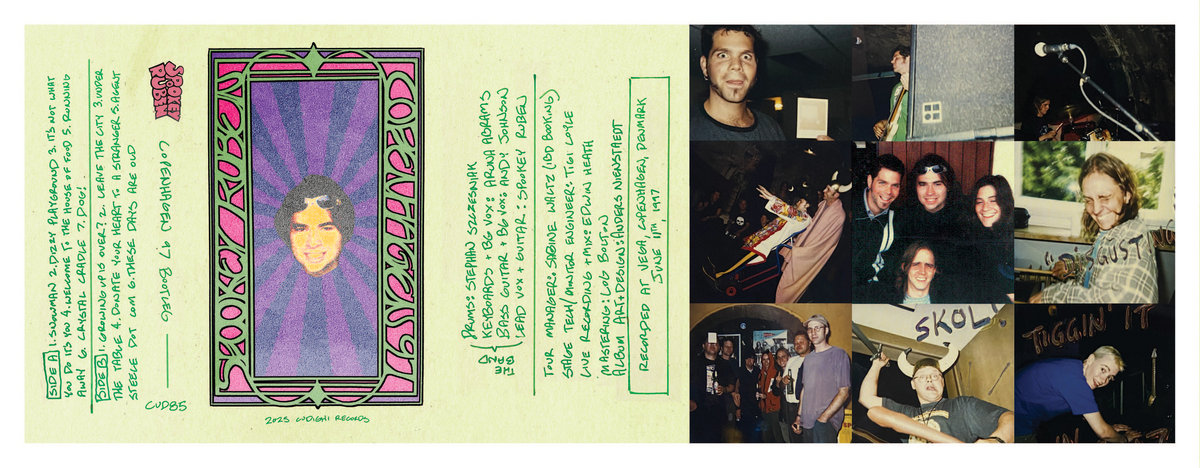 SIDE A 1. SNOWMAN 2. DIZZY PLAYGROUND 3. IT'S NOT WHAT
YOU DO IT'S YOU 4. WELCOME TO THE HOUSE OF FOOD 5. RUNNING
AWAY 6. CRYSTAL CRADLE 7. DOG!
SIDE B 1. GROWING UP IS OVER? 2. LEAVE THE CITY 3. UNDER
THE TABLE 4. DONATE YOUR HEART TO A STRANGER 5. AGENT
STEELE DOT COM 6. THESE DAYS ARE OLD
SPOOKEY
RUBEN
COPENHAGEN '97 BOOTLEG
CUD85
SPOOKEY RUBEN
2025 CUDIGHI RECORDS
DRUMS: STEPHAN SZCZESNIAK
KEYBOARDS + BG VOX: ARUNA ABRAMS
BASS GUITAR + BG VOX: ANDY JOHNSON
LEAD VOX + GUITAR: SPOOKEY RUBEN
TOUR MANAGER: SABINE WALTZ (IBD BOOKING)
STAGE TECH/MONITOR ENGINEER: TIGI LOYLE
LIVE RECORDING + MIX: EDWIN HEATH
MASTERING: LOB BOLTON
ALBUM ART + DESIGN: ANDERS NIENSTAEDT
RECORDED AT VEGA, COPENHAGEN, DENMARK
JUNE 11TH, 1997
"DISGUST
SKOL!
TIGGIN' IT